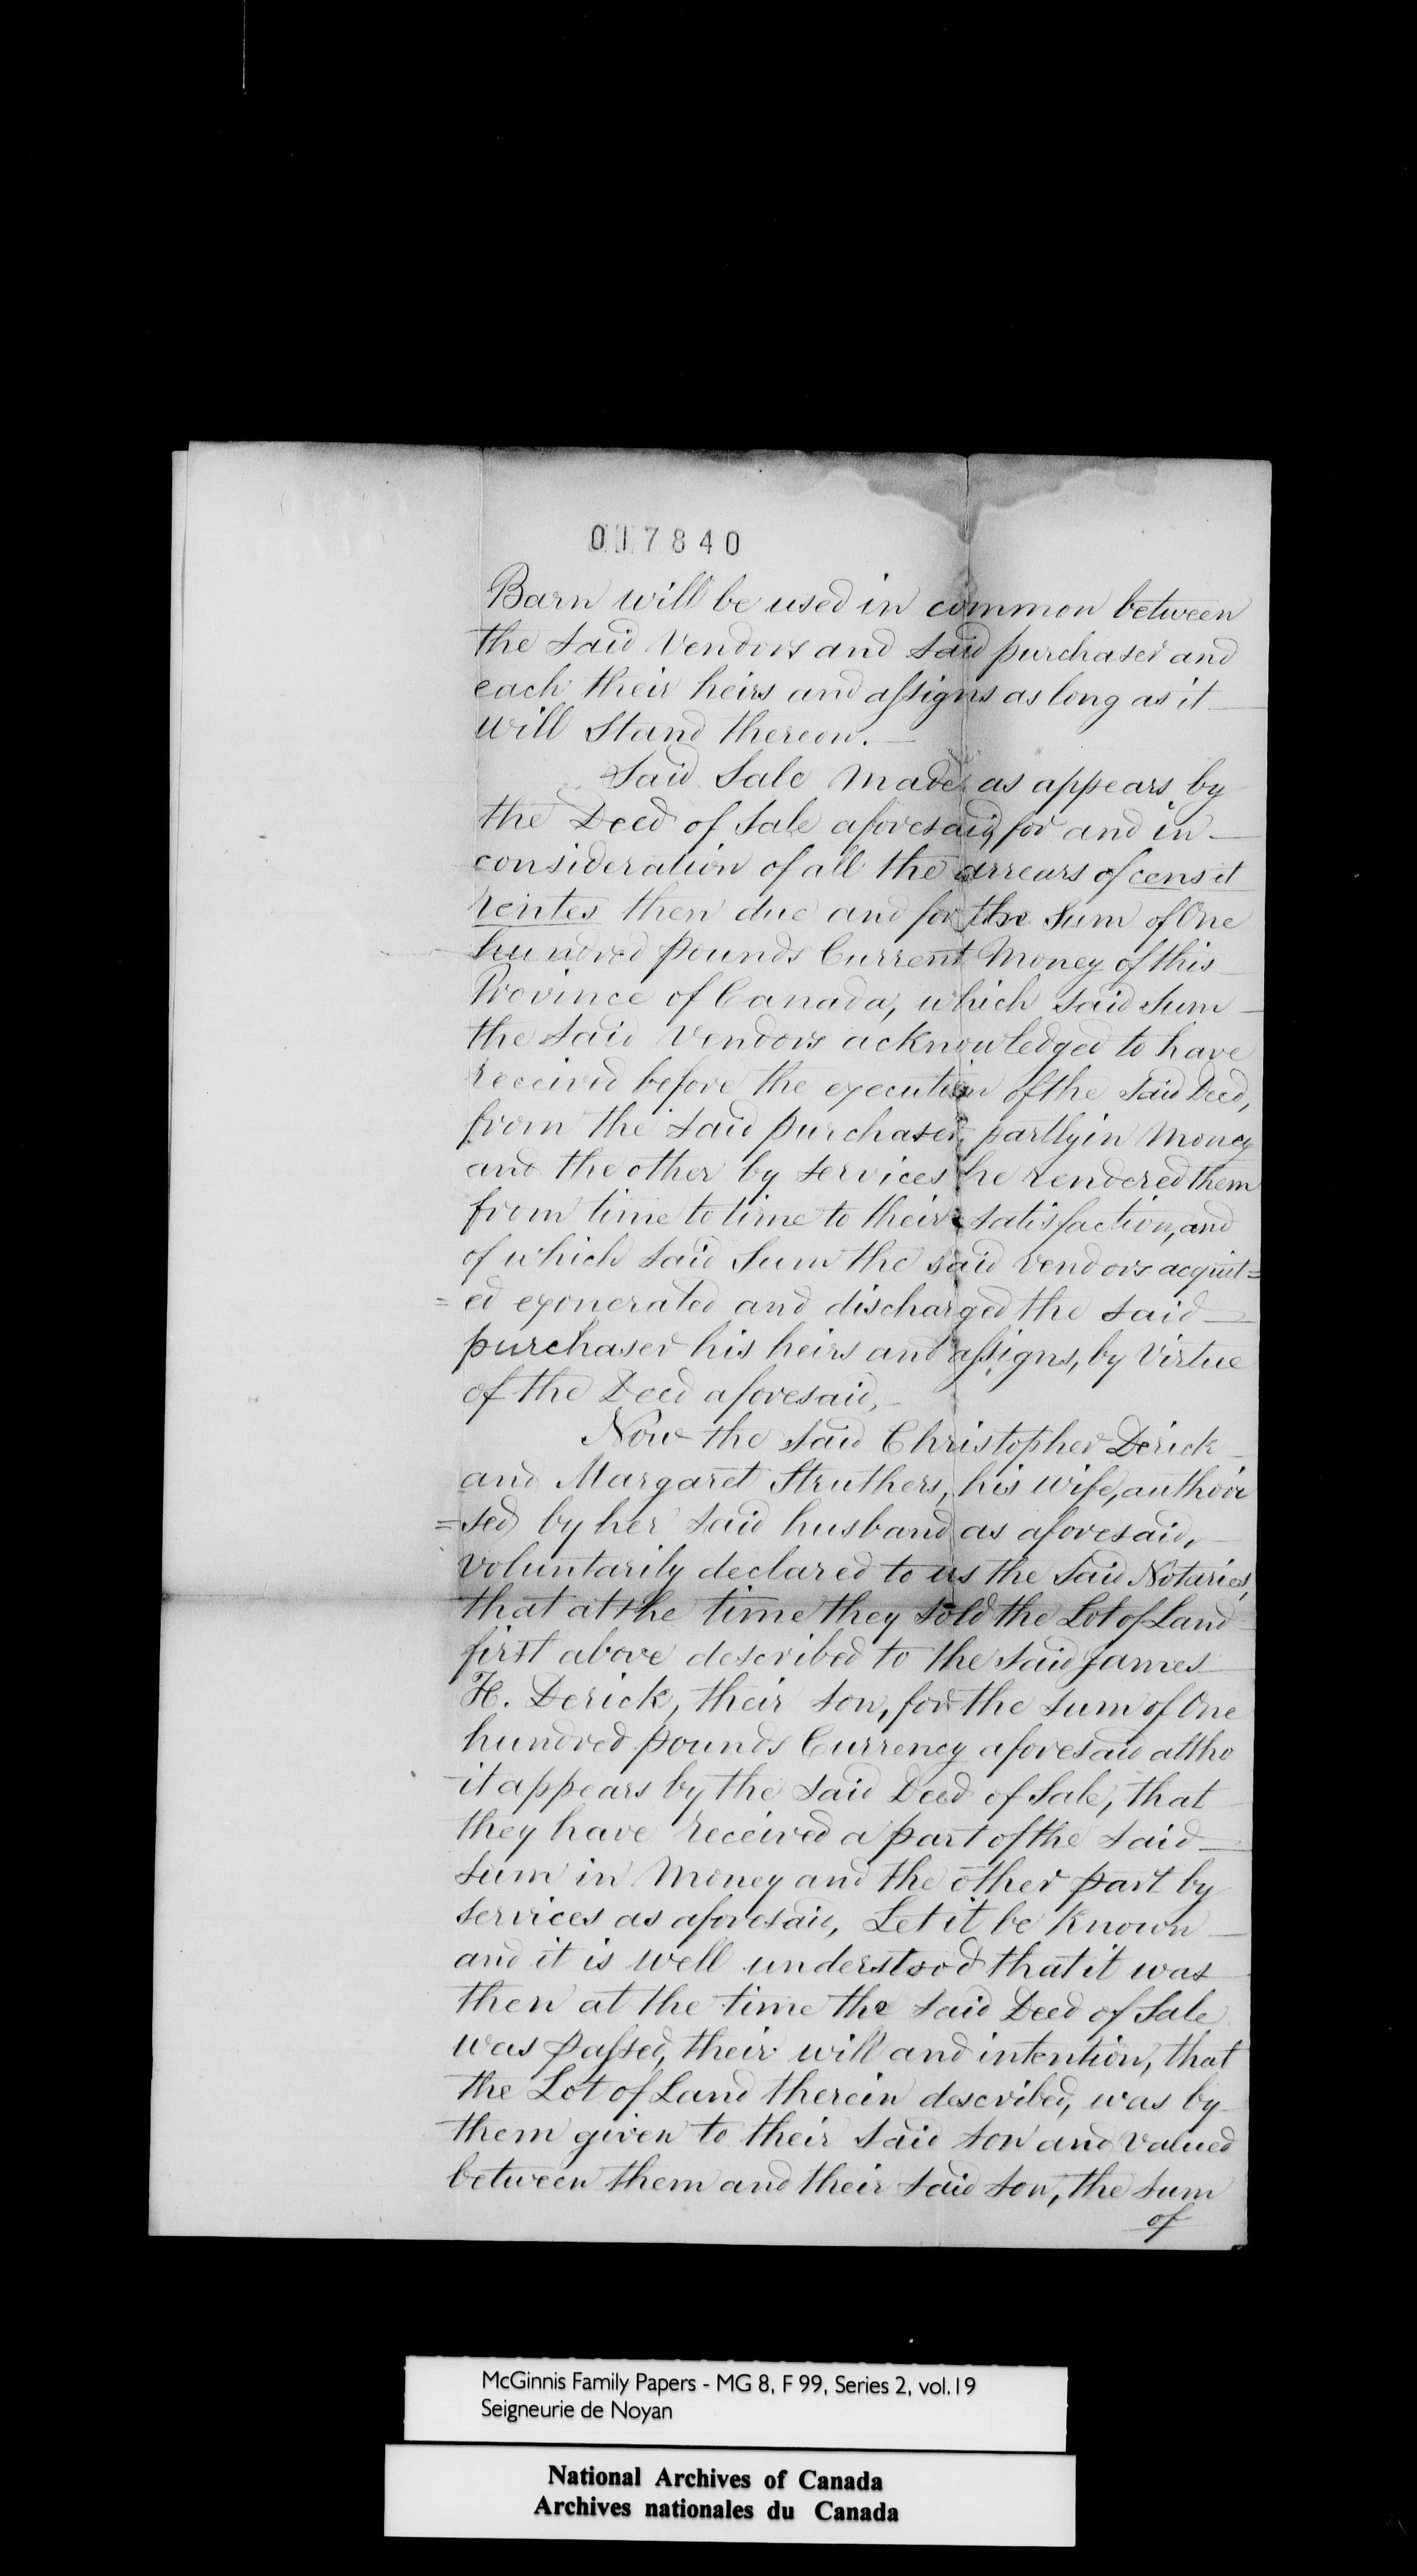 017840
Barn will be used in common between
the said Vendors and said purchaser and
each their heirs and assigns as long as it
will stand thereon.
Said Sale made as appears by
the Deed of Sale aforesaid, for and in
consideration of all the arrears of cens et
rentes then due and for the Sum of One
hundred pounds Current Money of this
Province of Canada, which said Sum
the said Vendors acknowledged to have
received before the execution of the said Deed,
from the said purchaser, partly in Money
and the other by services he rendered them
from time to time to their satisfaction, and
of which said Sum the said vendors acquit=
=ed exonerated and discharged the said
purchaser his heirs and assigns, by Virtue
of the Deed aforesaid,
Now the said Christopher Derick
and Margaret Struthers, his wife, authori
=sed by her said husband as aforesaid,
voluntarily declared to us the said Notaries,
that at the time they sold the Lot of Land
first above described to the said James
H. Derick, their son, for the sum of One
hundred pounds Currency aforesaid altho
it appears by the said Deed of Sale, that
they have received a part of the said
sum in Money and the other part by
services as aforesaid, Let it be Known
and it is well understood that it was
then at the time the said Deed of Sale
was passed, their will and intention, that
the Lot of Land therein described, was by
them given to their said son and valued
between them and their said son, the sum
of
McGinnis Family Papers - MG 8, F 99, Series 2, vol.19
Seigneurie de Noyan
National Archives of Canada
Archives nationales du Canada